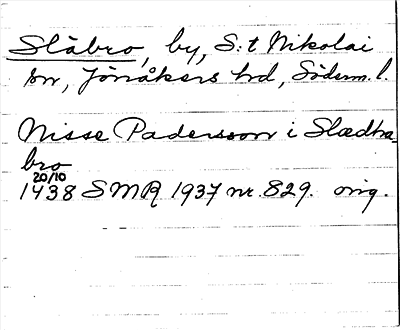 Släbro, by, S:t Nikolai
sn, Jönåkers hd, Söderm. l.
Nisse Padersson i Slædha-
bro
20/10
1438 SMR 1937 nr. 829. orig.